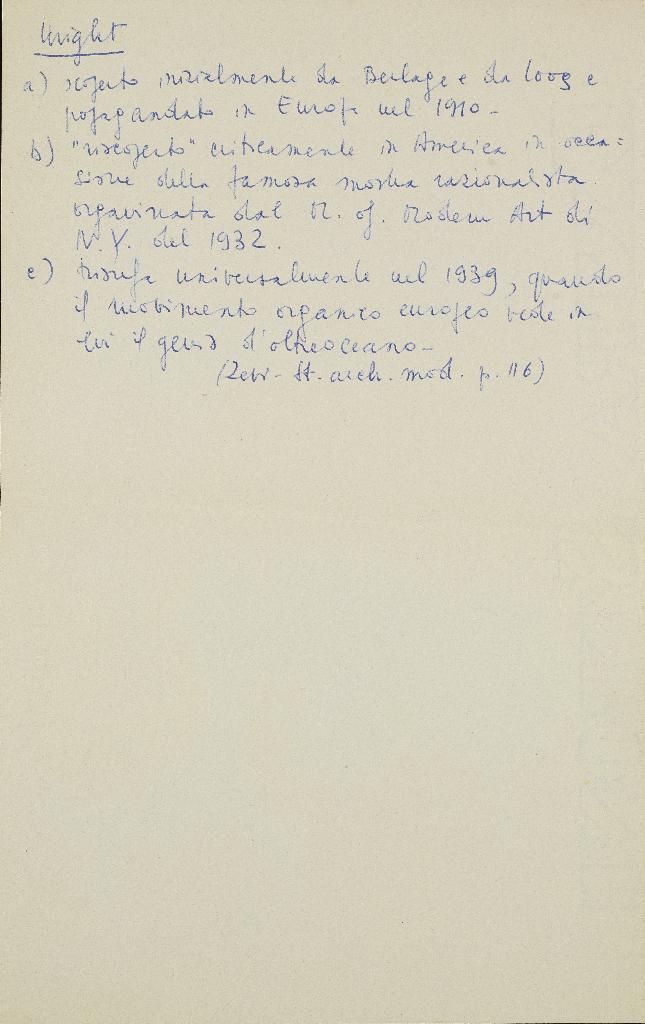 Wright
a) scoperto inizialmente da Berlage e da Loos e
propagandato in Europa nel 1910 -
b) "riscoperto" criticamente in America in occa=
sione della famosa mostra razionalista
organizzata dal M. of. Modern Art di
N.Y. del 1932.
c) trionfa universalmente nel 1939, quando
il movimento organico europeo vede in
lui il genio d'oltreoceano -
(Zevi - St. arch. mod. p. 116)